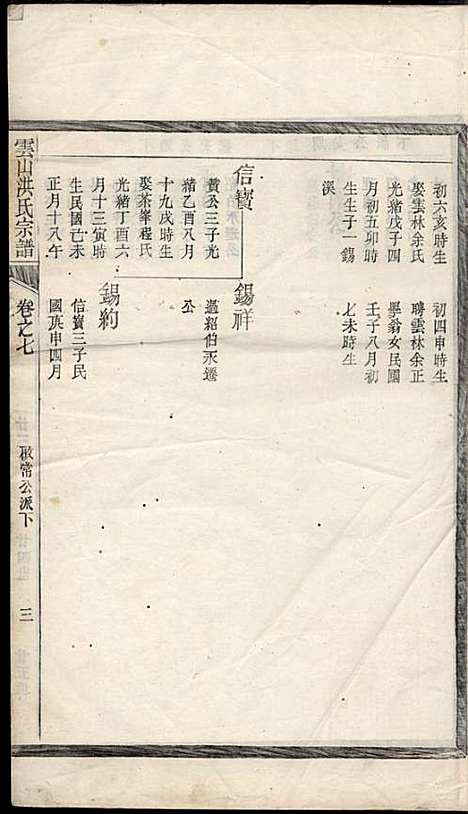 初六亥時生
娶雲林余氏
光緒戊子四
月初五卯時
生生子一錫
溪
初四申時生
聘雲林余正
學翁女民國
壬子八月初
七未時生
信寶
黃公三子光
緒乙酉八月
十九戌時生
娶茶峯程氏
光緒丁酉六
月十三寅時
生民國己未
正月十八午
錫祥
過紹伯永遷
公
錫約
信寶三子民
國庚申四月
雲山洪氏宗譜
卷之七
敬常公派下
三